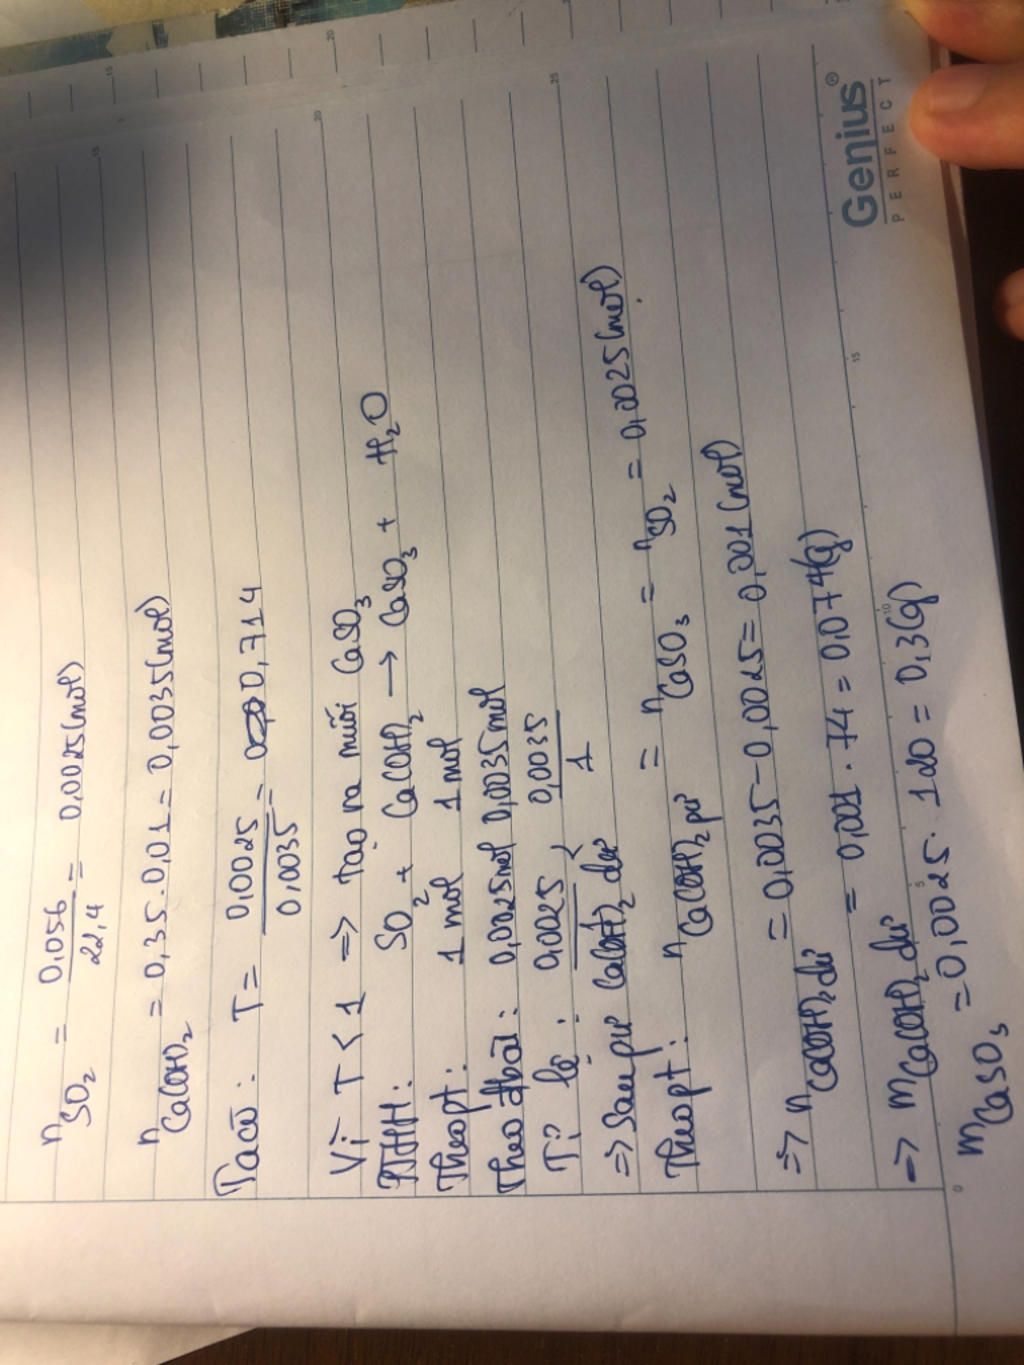 n SO₂ = 0,056/22,4 = 0,0025 (mol)
n Ca(OH)₂ = 0,35 . 0,01 = 0,0035 (mol)
Ta có : T = 0,0025/0,0035 = 0,714
Vì T < 1 => tạo ra muối CaSO₃
PTHH: SO₂ + Ca(OH)₂ → CaSO₃ + H₂O
Theo pt: 1 mol 1 mol
Theo đbài: 0,0025mol 0,0035mol
Tỉ lệ : 0,0025/1 < 0,0035/1
=> Sau pư Ca(OH)₂ dư
Theo pt: n Ca(OH)₂ pư = n CaSO₃ = n SO₂ = 0,0025 (mol)
=> n Ca(OH)₂ dư = 0,0035 - 0,0025 = 0,001 (mol)
=> m Ca(OH)₂ dư = 0,001 . 74 = 0,074 (g)
m CaSO₃ = 0,0025 . 120 = 0,3 (g)
Genius®
PERFECT